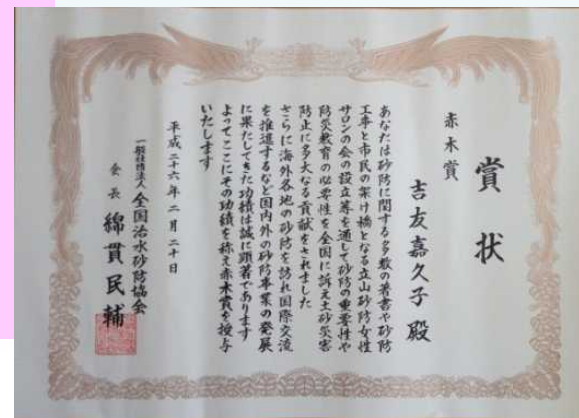 賞状
赤木賞
吉友嘉久子殿
あなたは砂防に関する多数の著書や砂防
工事と市民の架け橋となる立山砂防女性
サロンの会の設立等を通して砂防の重要性や
防災教育の必要性を全国に訴え土砂災害
防止に多大なる貢献をされました
さらに海外各地の砂防を訪れ国際交流
を推進するなど国内外の砂防事業の発展
に果たしてきた功績は誠に顕著であります
よってここにその功績を称え赤木賞を授与
いたします
平成二十六年二月二十日
一般社団法人全国治水砂防協会
会長綿貫民輔